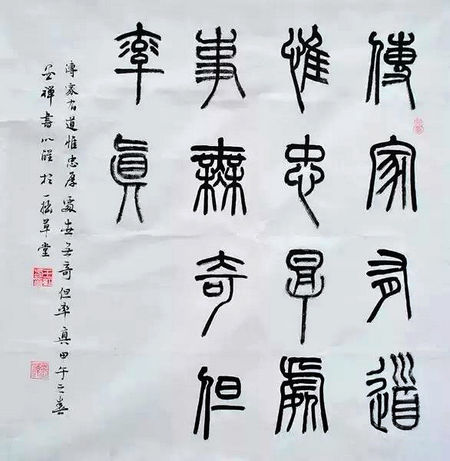 傳家有道
惟忠厚處
事無奇但
率眞
傳家有道惟忠厚處世无奇但率真甲午之
禅書於一草堂